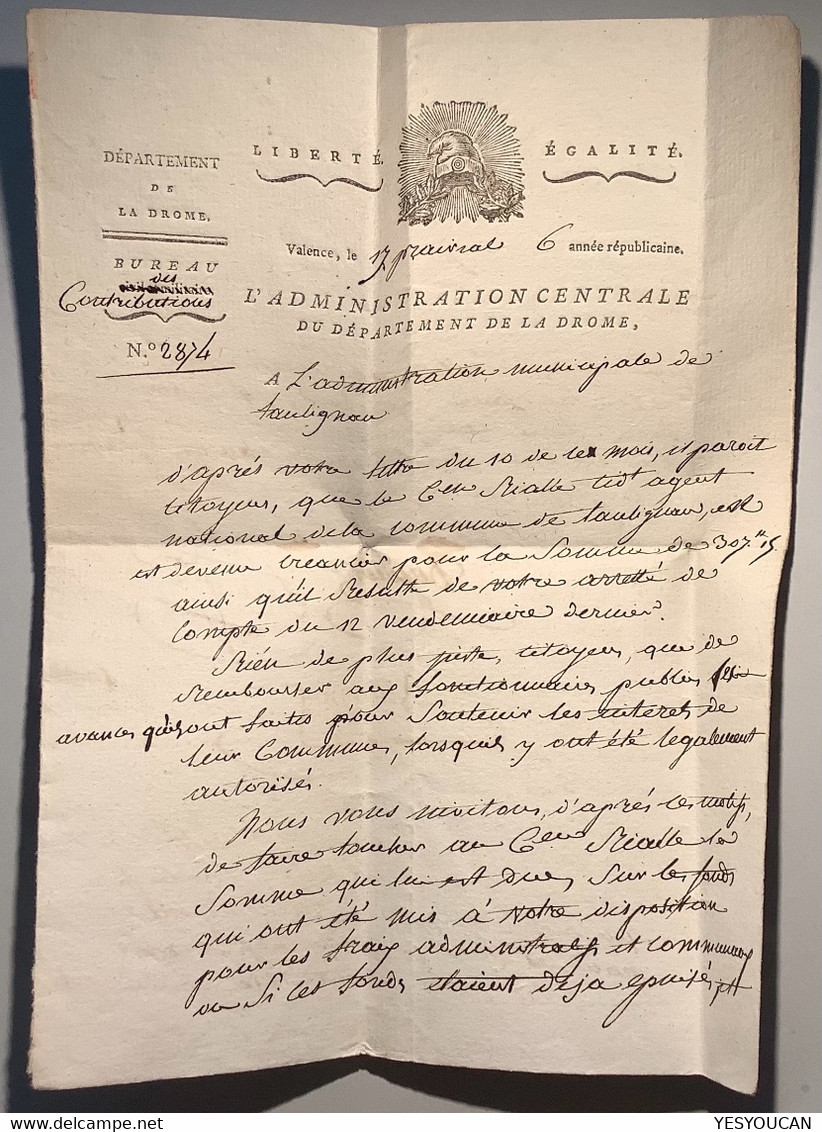 LIBERTÉ. ÉGALITÉ.
DÉPARTEMENT
DE
LA DROME.
BUREAU
des
Contributions
N.º 2874
Valence, le 17 prairial 6 année républicaine.
L'ADMINISTRATION CENTRALE
DU DÉPARTEMENT DE LA DROME,
A L'administration municipale de
taulignan
d'après votre lettre du 10 de ce mois, il paroit
citoyens, que le Cen Rialle agent
national de la commune de taulignan, est
est devenu creancier pour la Somme de 307.tt 15
ainsi qu'il Resulte de votre arretté de
Compte du 12 Vendemiaire dernier.
Rien de plus juste, citoyens, que de
Rembourser aux fonctionnaires publics les
avances qu'ils ont faites pour Soutenir les interets de
leur Commune, lorsqu'ils y ont été legalement
autorisés.
Nous vous invitons, d'après ces motifs,
de faire toucher au Cen Rialle la
Somme qui lui est due, Sur les fonds
qui ont été mis à votre disposition
pour les fraix administratifs et communaux
ou Si ces fonds etaient deja epuisés,
YESYOUCAN